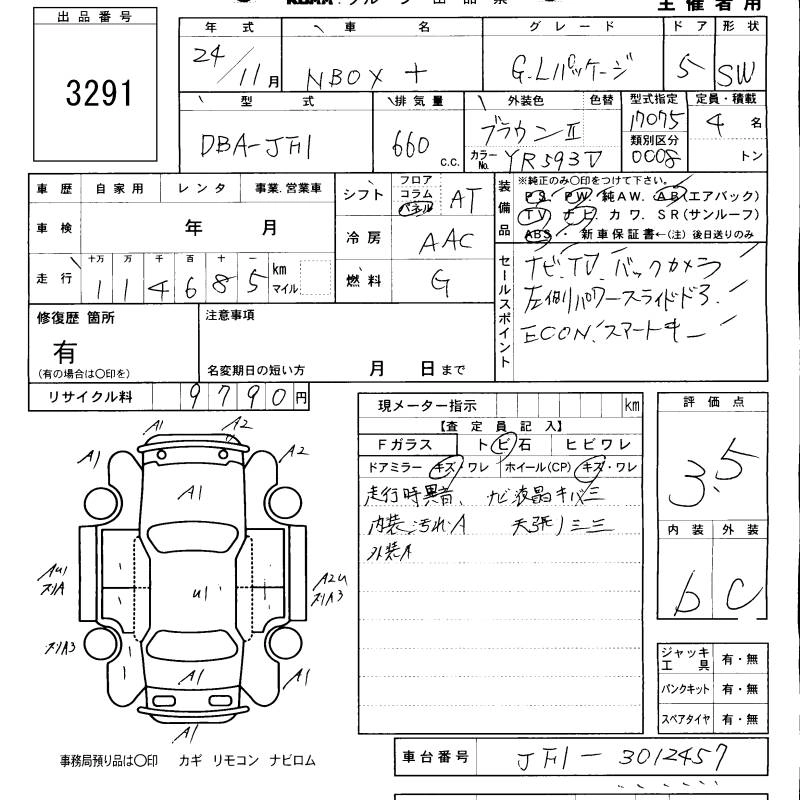 出品番号
3291
主催者用
年式 車名 グレード ドア 形状
24/11月 NBOX + G.Lパッケージ 5 SW
型式 排気量 外装色 色替 型式指定 定員・積載
DBA-JF1 660 c.c. ブラウンII 17075 4名
カラーNo. YR593P 類別区分 0008 トン
車歴 自家用 レンタ 事業.営業車
車検 年 月
走行 十万 万 千 百 十 一
114685 km マイル
シフト フロア コラム パネル AT
冷房 AAC
燃料 G
装備品 ※純正のみ○印をつけて下さい。
PS. PW. 純AW. AB(エアバック)
TV ナビ. カワ. SR(サンルーフ)
ABS ・ 新車保証書←(注)後日送りのみ
セールスポイント
ナビ.TV.バックカメラ
左側パワースライドドア.
ECON.スマートキー
修復歴 箇所
有
(有の場合は○印を)
注意事項
名変期日の短い方 月 日まで
リサイクル料 9790円
現メーター指示 km
【査定員記入】
Fガラス トビ石 ヒビワレ
ドアミラー キズ・ワレ ホイール(CP) キズ・ワレ
走行時異音、ナビ液晶キズ三
内装汚れA 天張り三三
外装A
評価点
3.5
内装 外装
b C
ジャッキ工具 有・無
パンクキット 有・無
スペアタイヤ 有・無
A1 A2
A1 A2
A1
AU1 スリA
U1
A2U スリA3
スリA3
A1 A1
A1
事務局預り品は○印 カギ リモコン ナビロム
車台番号 JF1-3012457